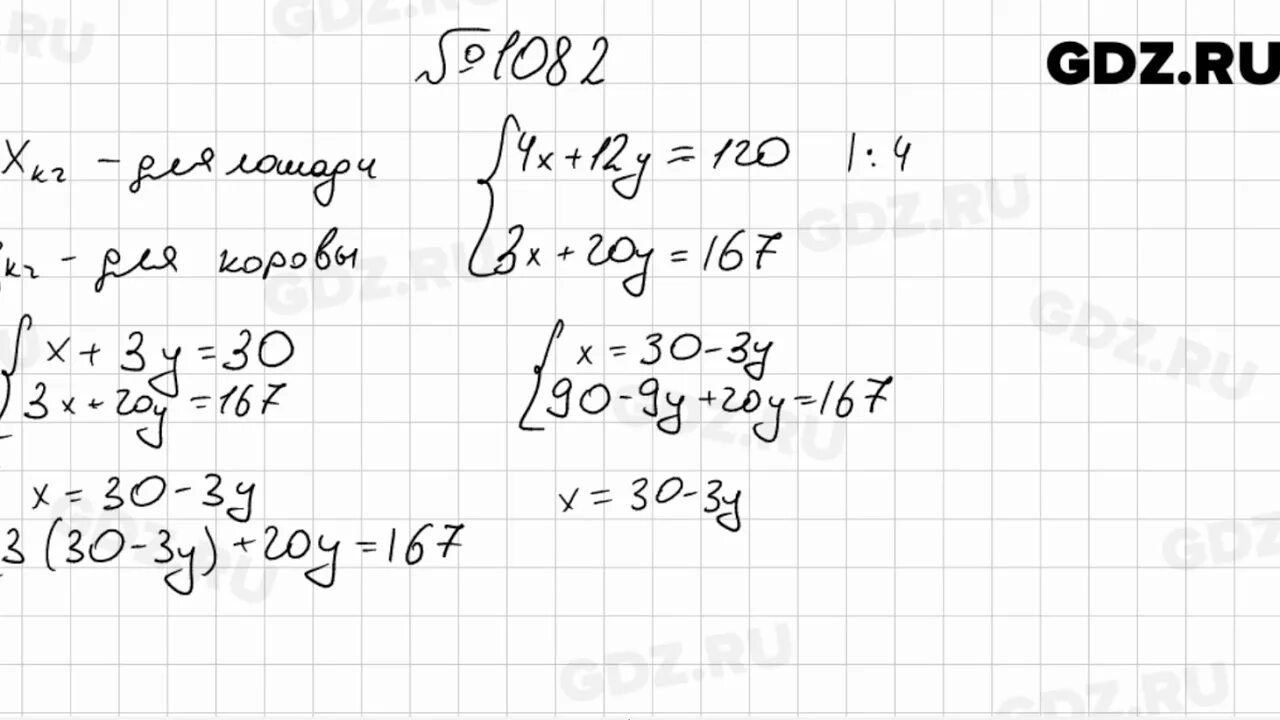 №1082
GDZ.RU
Xкг - для лошади
кг - для коровы
4x+12y=120 |:4
3x+20y=167
x+3y=30
3x+20y=167
x=30-3y
3(30-3y)+20y=167
x=30-3y
90-9y+20y=167
x=30-3y